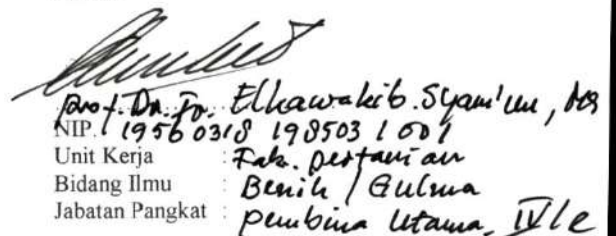 Prof. Dr. Ir. Elkawakib Syam'un, MS
NIP. 19560318 198503 1 001
Unit Kerja : Fak. Pertanian
Bidang Ilmu : Benih / Gulma
Jabatan Pangkat : Pembina Utama, IV/e